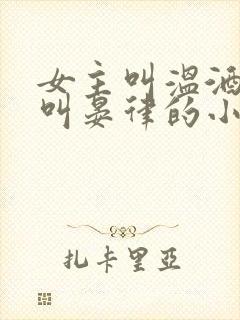 女主叫温酒
叫晏律的小
扎卡里亞